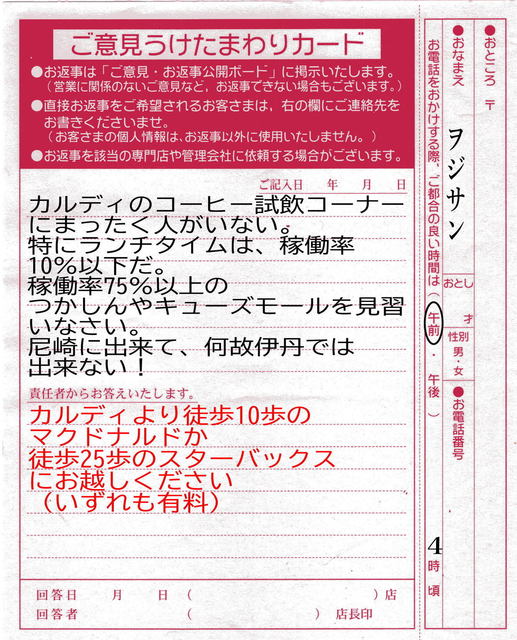 ご意見うけたまわりカード
●お返事は「ご意見・お返事公開ボード」に掲示いたします。
（営業に関係のないご意見など，お返事できない場合もございます。）
●直接お返事をご希望されるお客さまは，右の欄にご連絡先を
お書きくださいませ。
（お客さまの個人情報は、お返事以外に使用いたしません。）
●お返事を該当の専門店や管理会社に依頼する場合がございます。
ご記入日　年　月　日
カルディのコーヒー試飲コーナー
にまったく人がいない。
特にランチタイムは、稼働率
10%以下だ。
稼働率75%以上の
つかしんやキューズモールを見習
いなさい。
尼崎に出来て、何故伊丹では
出来ない！
責任者からお答えいたします。
カルディより徒歩10歩の
マクドナルドか
徒歩25歩のスターバックス
にお越しください
（いずれも有料）
回答日　月　日（　）店
回答者（　）店長印
●おところ 〒
●おなまえ ヲジサン
おとし　才
性別　男・女
●お電話番号
お電話をおかけする際，ご都合の良い時間は（午前・午後）4時頃